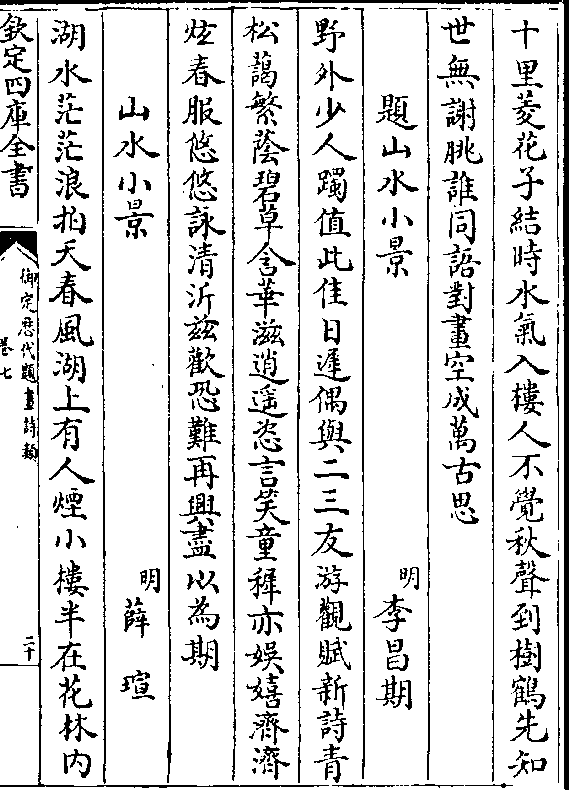 十里菱花子結時水氣入樓人不覺秋聲到樹鶴先知
世無謝朓誰同語對畫空成萬古思
題山水小景
明李昌期
野外少人躅值此佳日遲偶與二三友游觀賦新詩青
松藹繁蔭碧草含華滋逍遥恣言笑童穉亦娛嬉濟濟
炫春服悠悠詠清沂兹歡恐難再興盡以為期
山水小景
明薛瑄
湖水茫茫浪拍天春風湖上有人煙小樓半在花林内
欽定四庫全書
御定歷代題畫詩類
卷七
二十